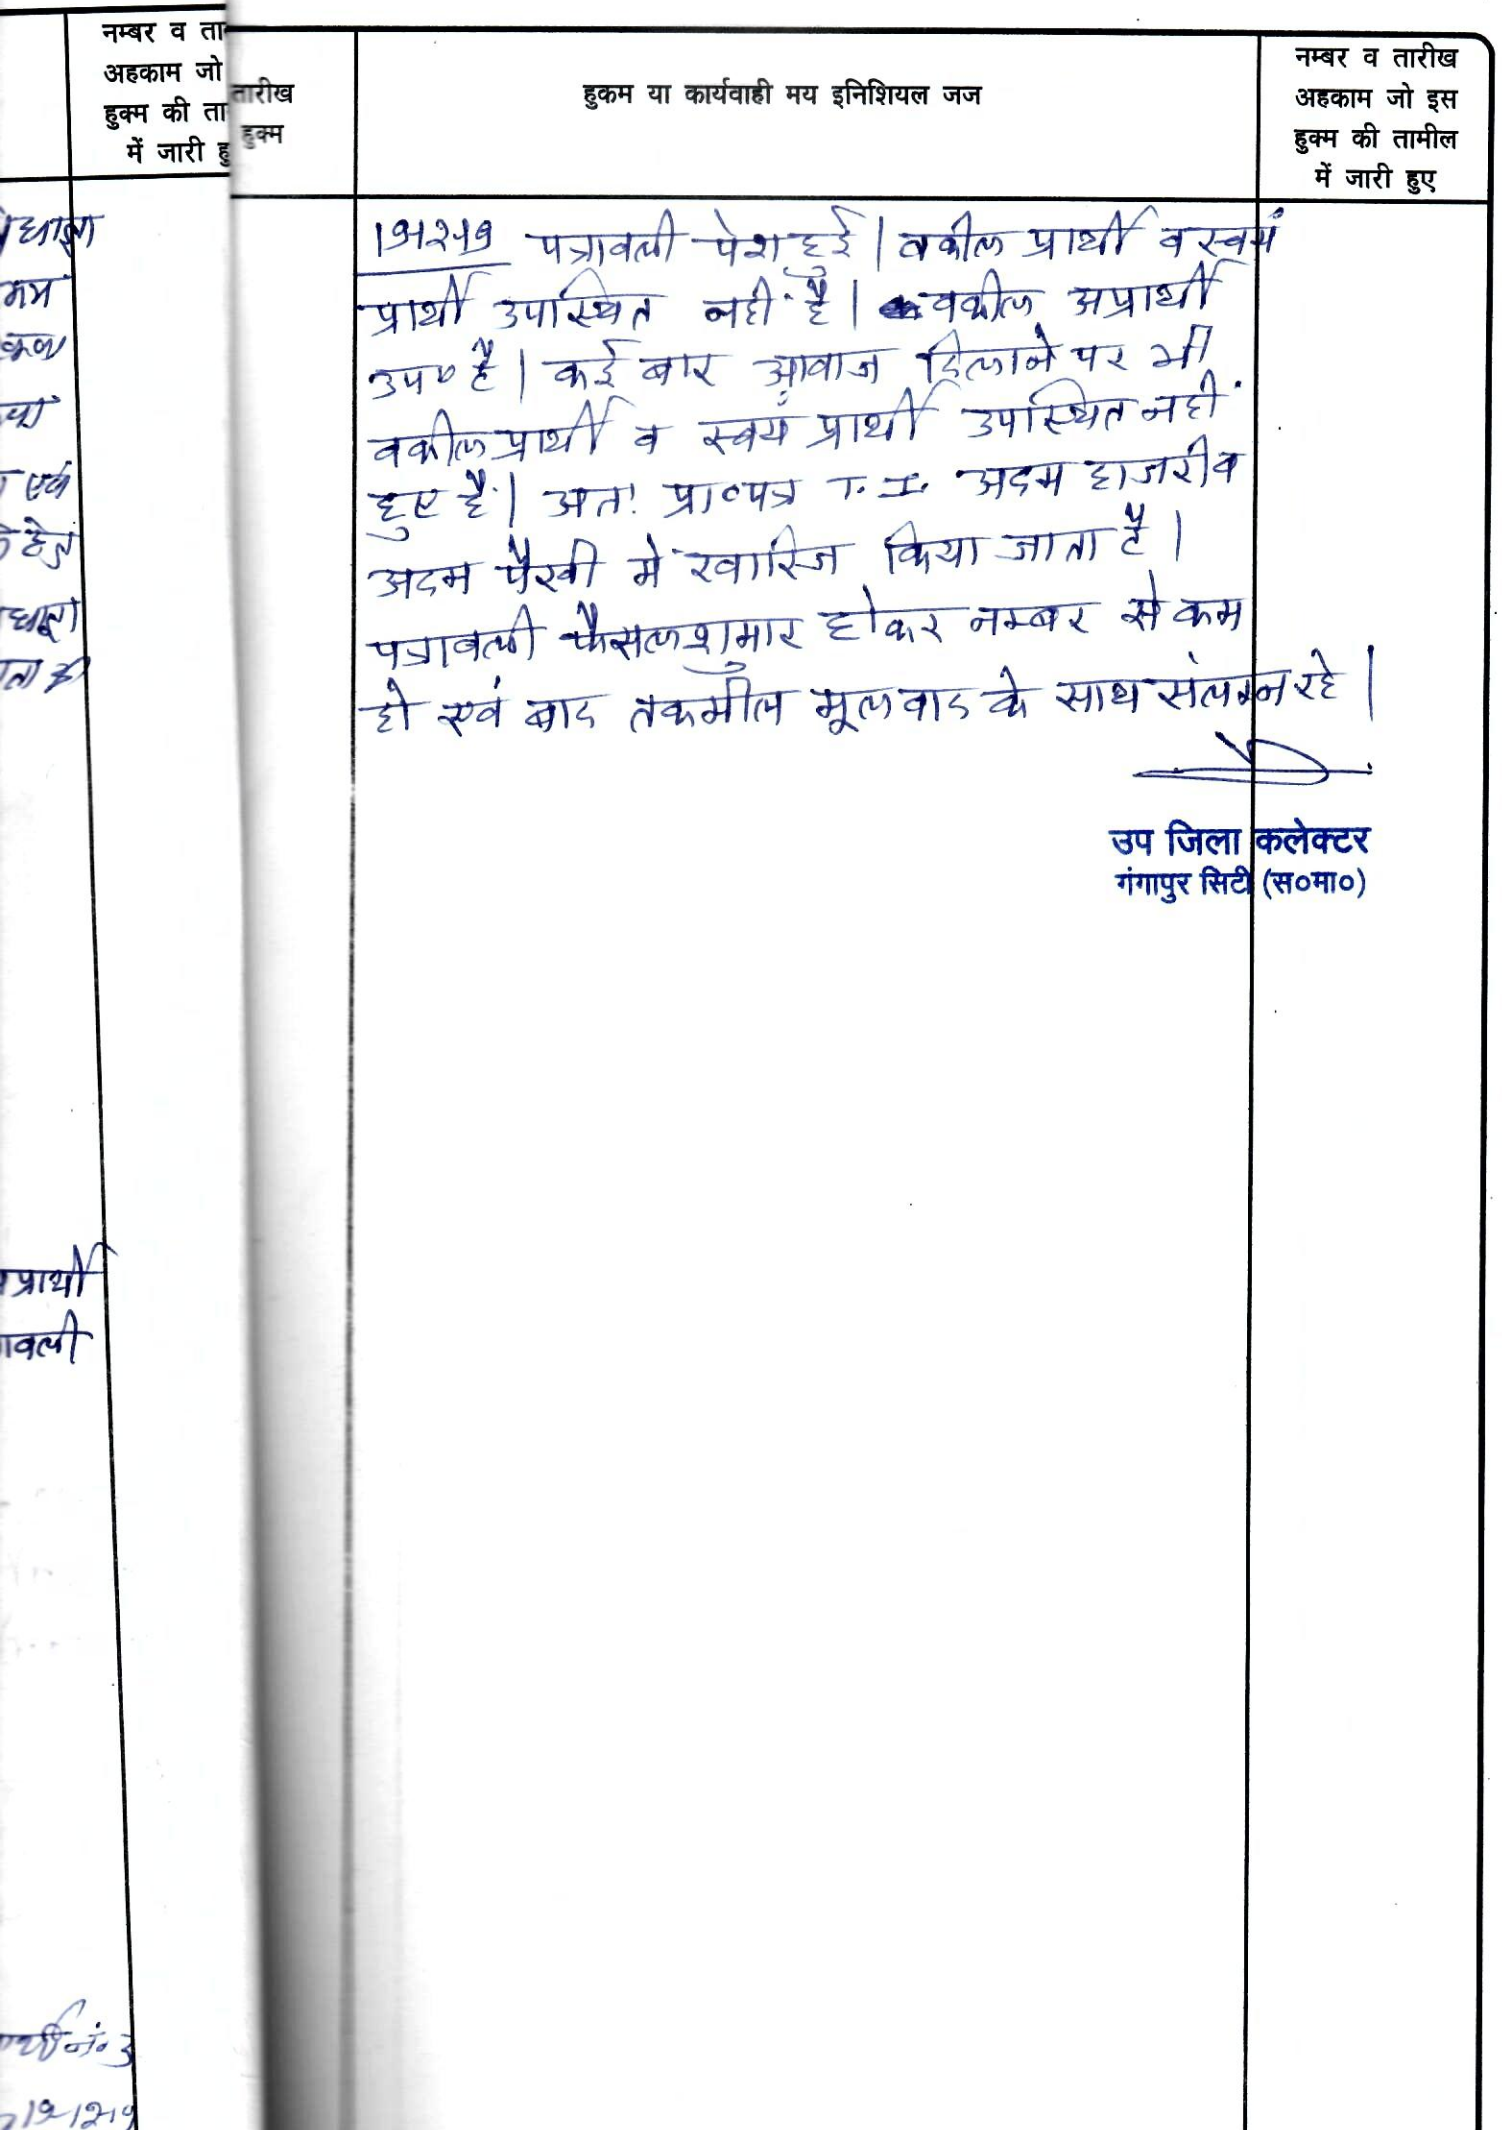 नम्बर व ता
अहकाम जो
हुक्म की ता
में जारी हु
तारीख
हुक्म
हुकम या कार्यवाही मय इनिशियल जज
नम्बर व तारीख
अहकाम जो इस
हुक्म की तामील
में जारी हुए
पत्रावली पेश हुई | वकील प्रार्थी व स्वयं
प्रार्थी उपास्थित नहीं है | वकील अप्रार्थी
उप० है | कई बार आवाज दिलाने पर भी
वकील प्रार्थी व स्वयं प्रार्थी उपास्थित नहीं
हुए है | अतः प्रा०पत्र T.I. अदम हाजरी व
अदम पैरवी मे खारिज किया जाता है |
पत्रावली फैसलशुमार होकर नम्बर से कम
हो एवं बाद तकमील मूलवाद के साथ संलग्न रहे |
उप जिला कलेक्टर
गंगापुर सिटी (स०मा०)
प्रार्थी
वली